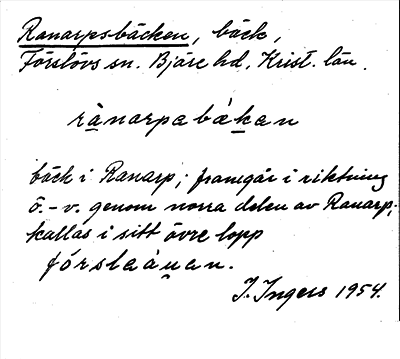 Ranarpsbäcken, bäck,
Förslövs sn. Bjäre hd, Krist. län.
rànarpabæ̀kan
bäck i Ranarp; framgår i riktning
ö.-v. genom norra delen av Ranarp;
kallas i sitt övre lopp
fórslaàu̯an.
I. Ingers 1954.